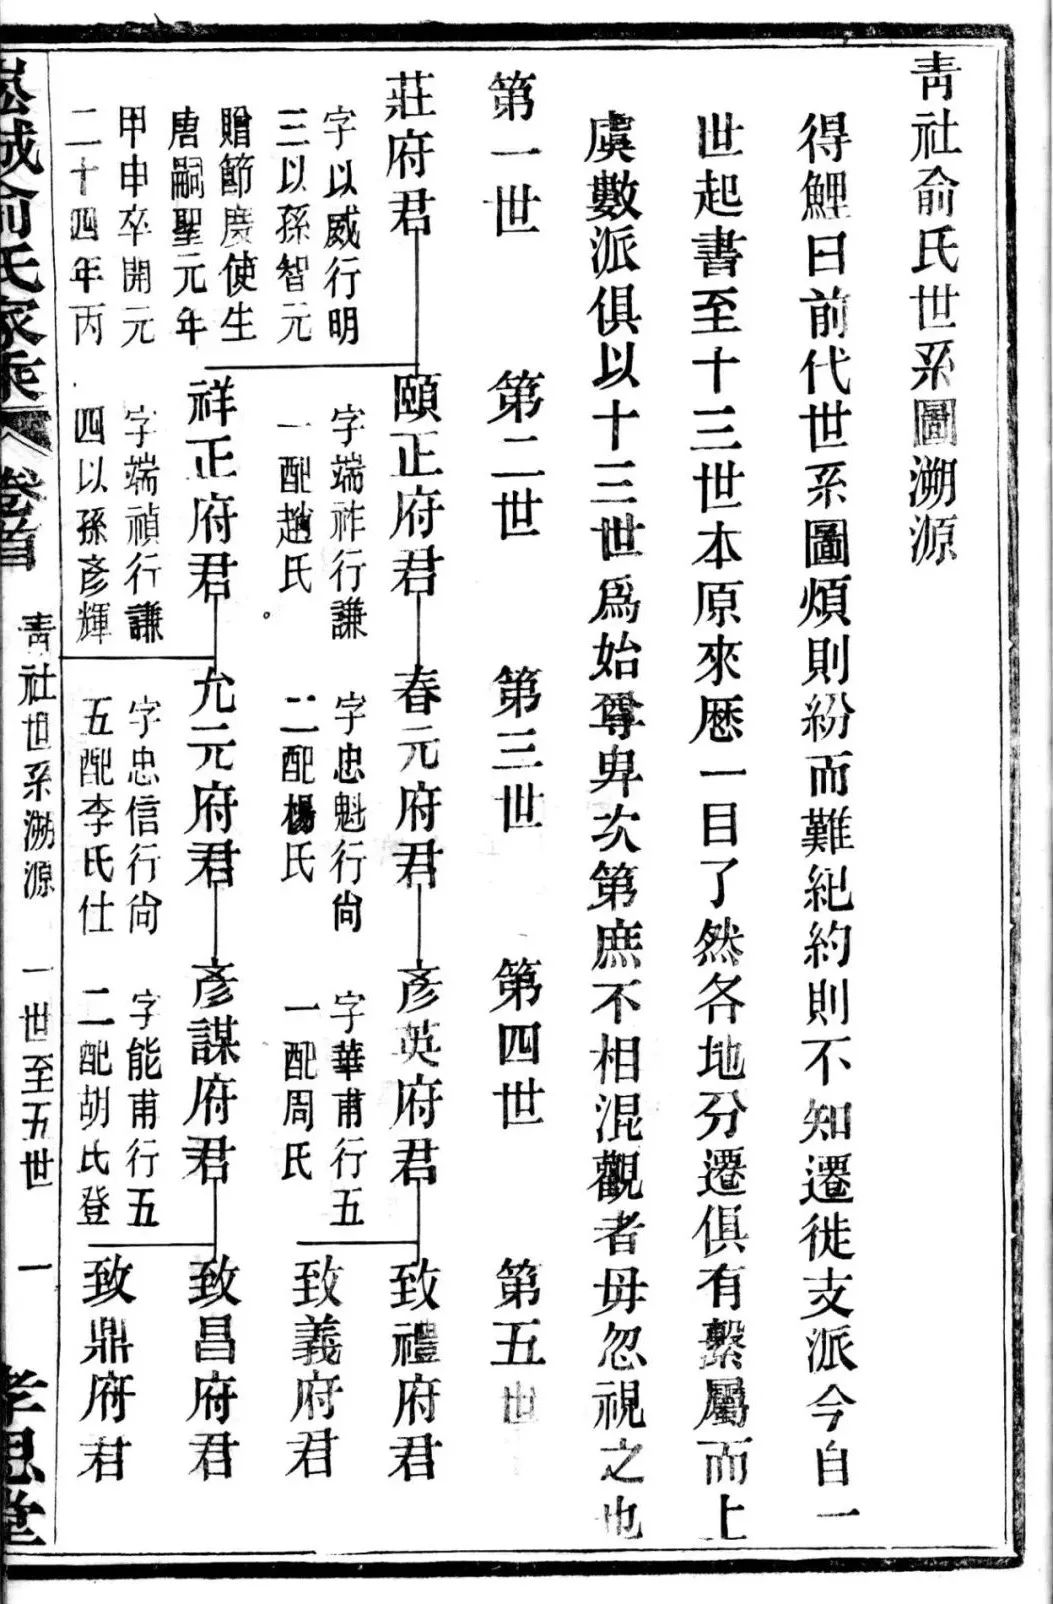 青社俞氏世系圖溯源
得鯉曰前代世系圖煩則紛而難紀約則不知遷徙支派今自一
世起書至十三世本原來歷一目了然各地分遷俱有繫屬而上
虞數派俱以十三世爲始尊卑次第庶不相混觀者毋忽視之也
第一世
第二世
第三世
第四世
第五世
莊府君
字以威行明
三以孫智元
贈節度使生
唐嗣聖元年
甲申卒開元
二十四年丙
頤正府君
字端祚行謙
一配趙氏
春元府君
字忠魁行尙
二配楊氏
彥英府君
字華甫行五
一配周氏
致禮府君
致義府君
祥正府君
字端禎行謙
四以孫彥輝
允元府君
字忠信行尙
五配李氏仕
彥謀府君
字能甫行五
二配胡氏登
致昌府君
致鼎府君
嵩城俞氏家乘
卷首
青社世系溯源
一世至五世
一
孝思堂